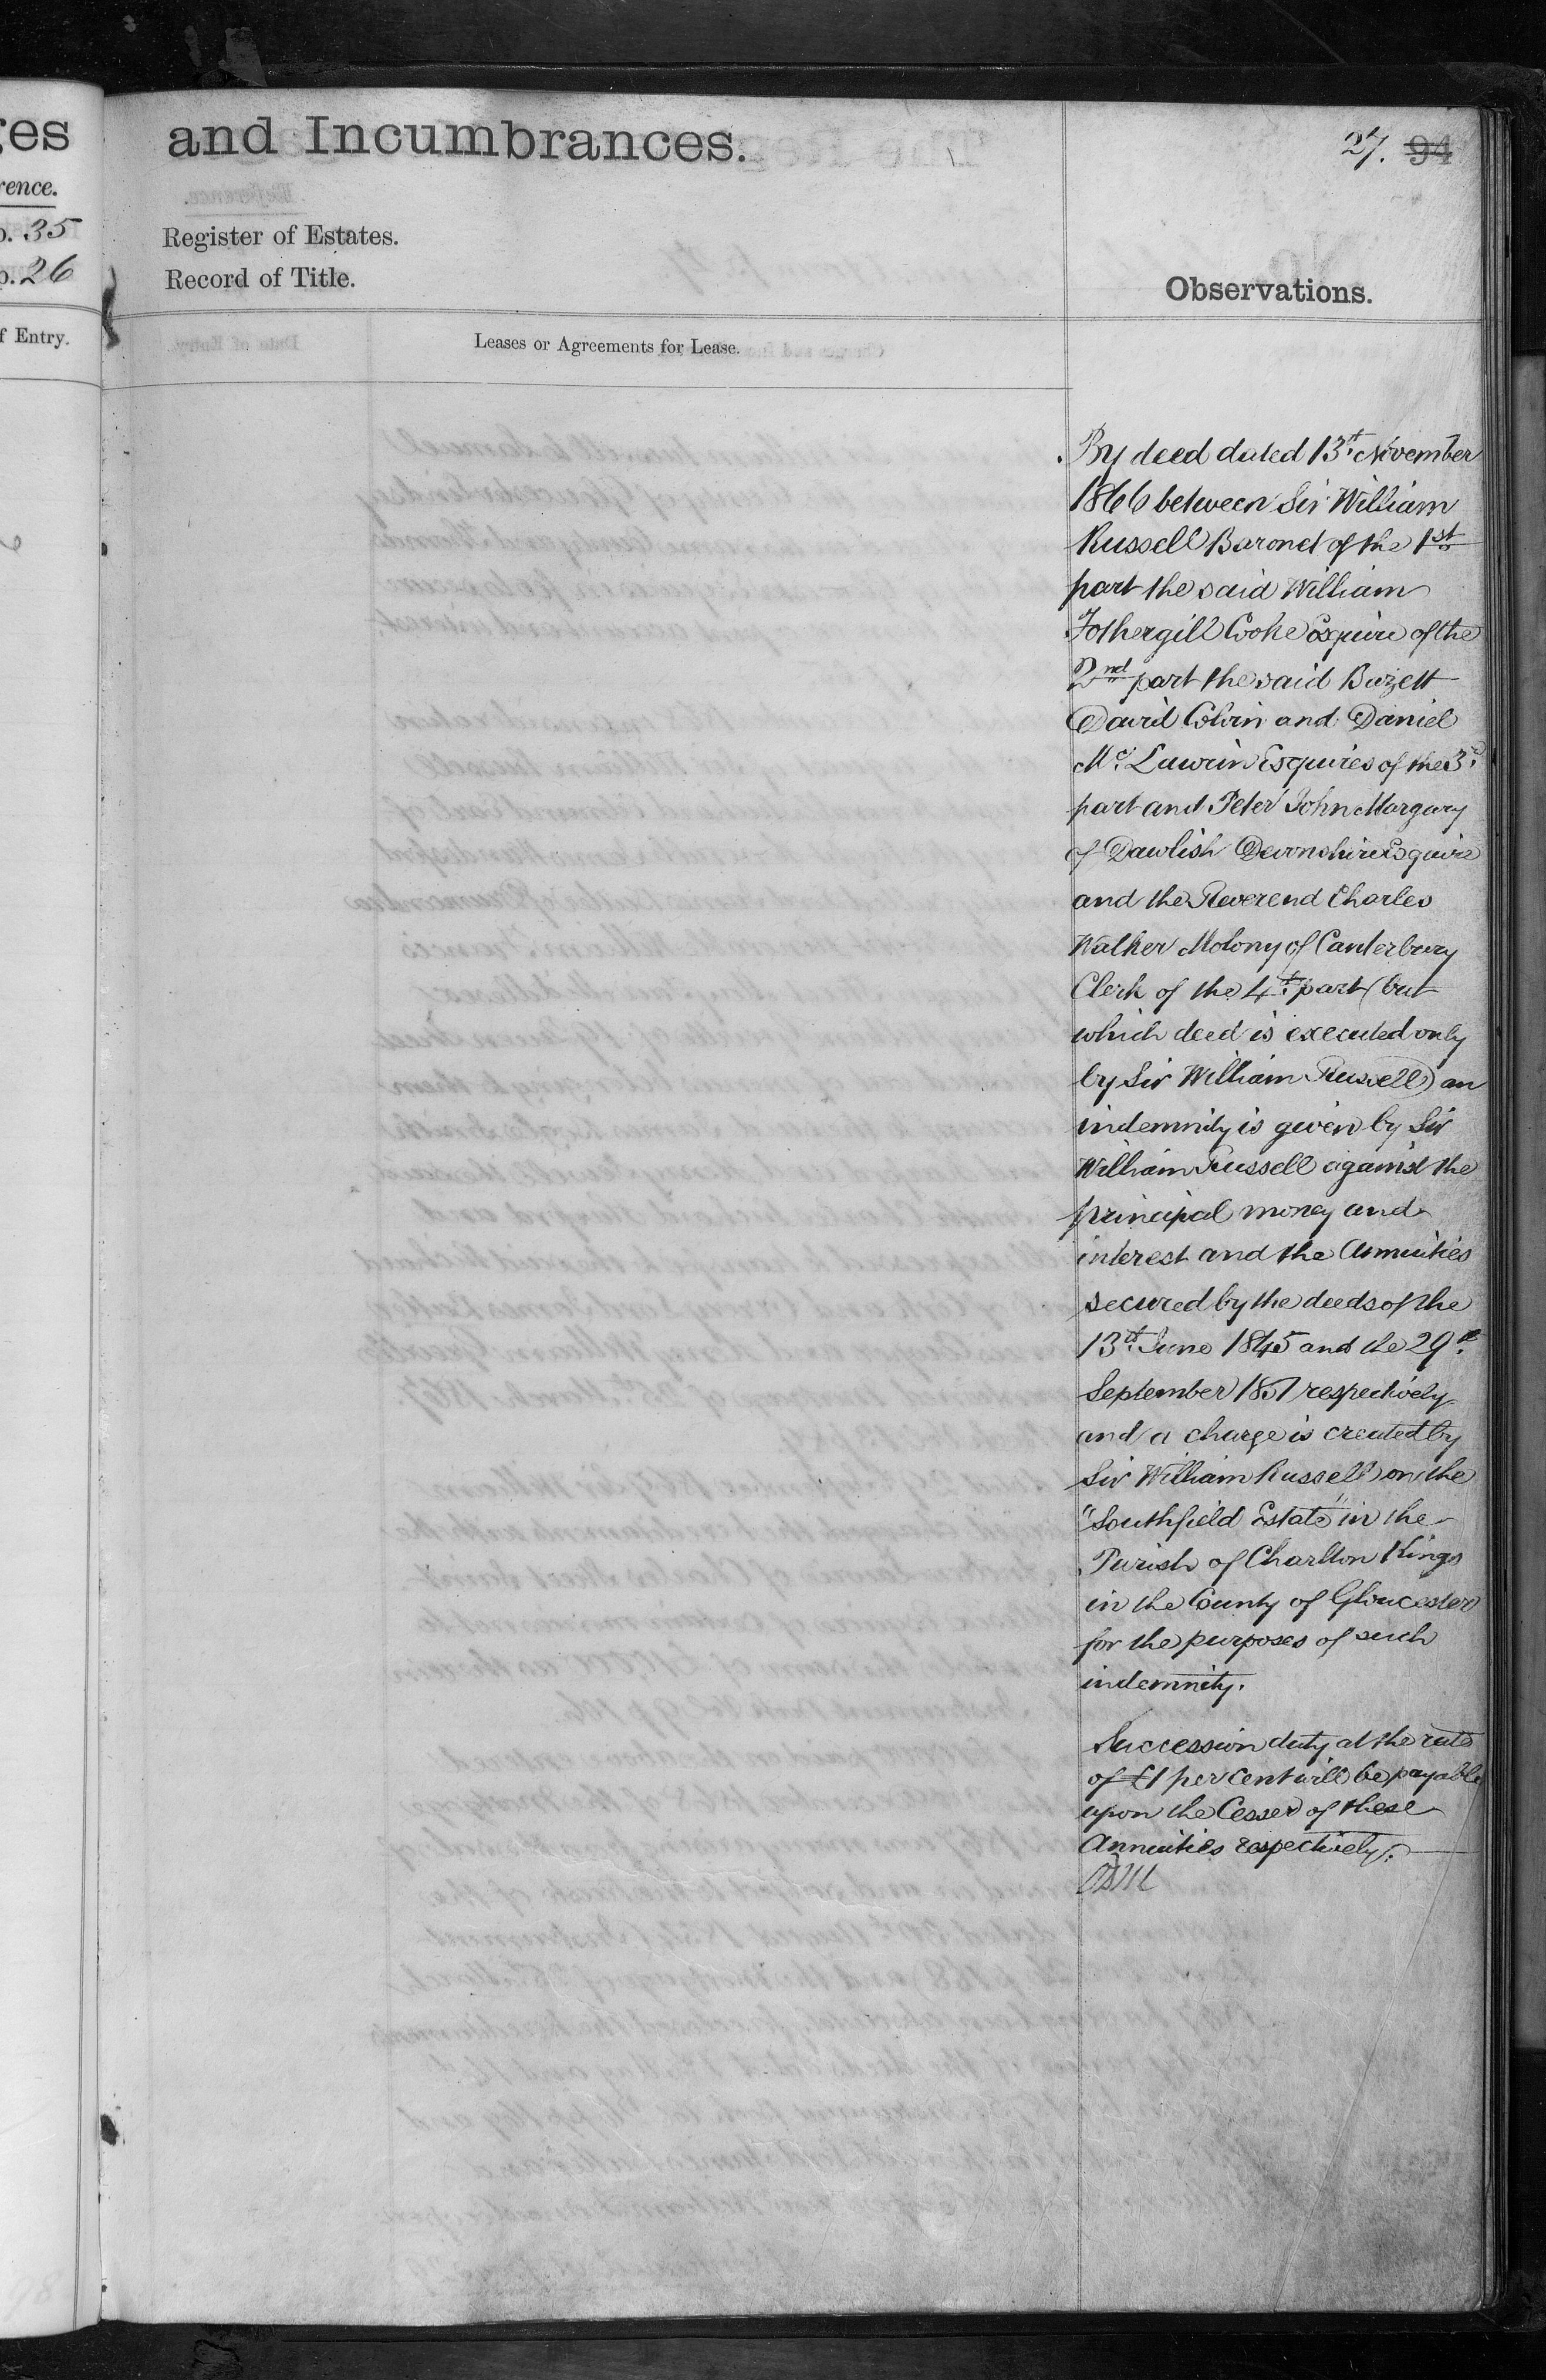 ges
rence.
p. 35
p. 26
f Entry.
and Incumbrances.
27. 94
Register of Estates.
Record of Title.
Observations.
Leases or Agreements for Lease.
By deed dated 13th November
1866 between Sir William
Russell Baronet of the 1st
part the said William
Fothergill Cooke Esquire of the
2nd part the said Buzett
David Colvin and Daniel
Mc Laurin Esquires of the 3d
part and Peter John Margary
of Dawlish Devonshire Esquire
and the Reverend Charles
Walker Molony of Canterbury
Clerk of the 4th part (but
which deed is executed only
by Sir William Russell) an
indemnity is given by Sir
William Russell against the
principal money and
interest and the Annuities
secured by the deeds of the
13th June 1845 and the 29th
September 1851 respectively
and a charge is created by
Sir William Russell on the
"Southfield Estate" in the
Parish of Charlton Kings
in the County of Gloucester
for the purposes of such
indemnity.
Succession duty at the rate
of £1 per Cent will be payable
upon the Cesser of these
Annuities respectively.